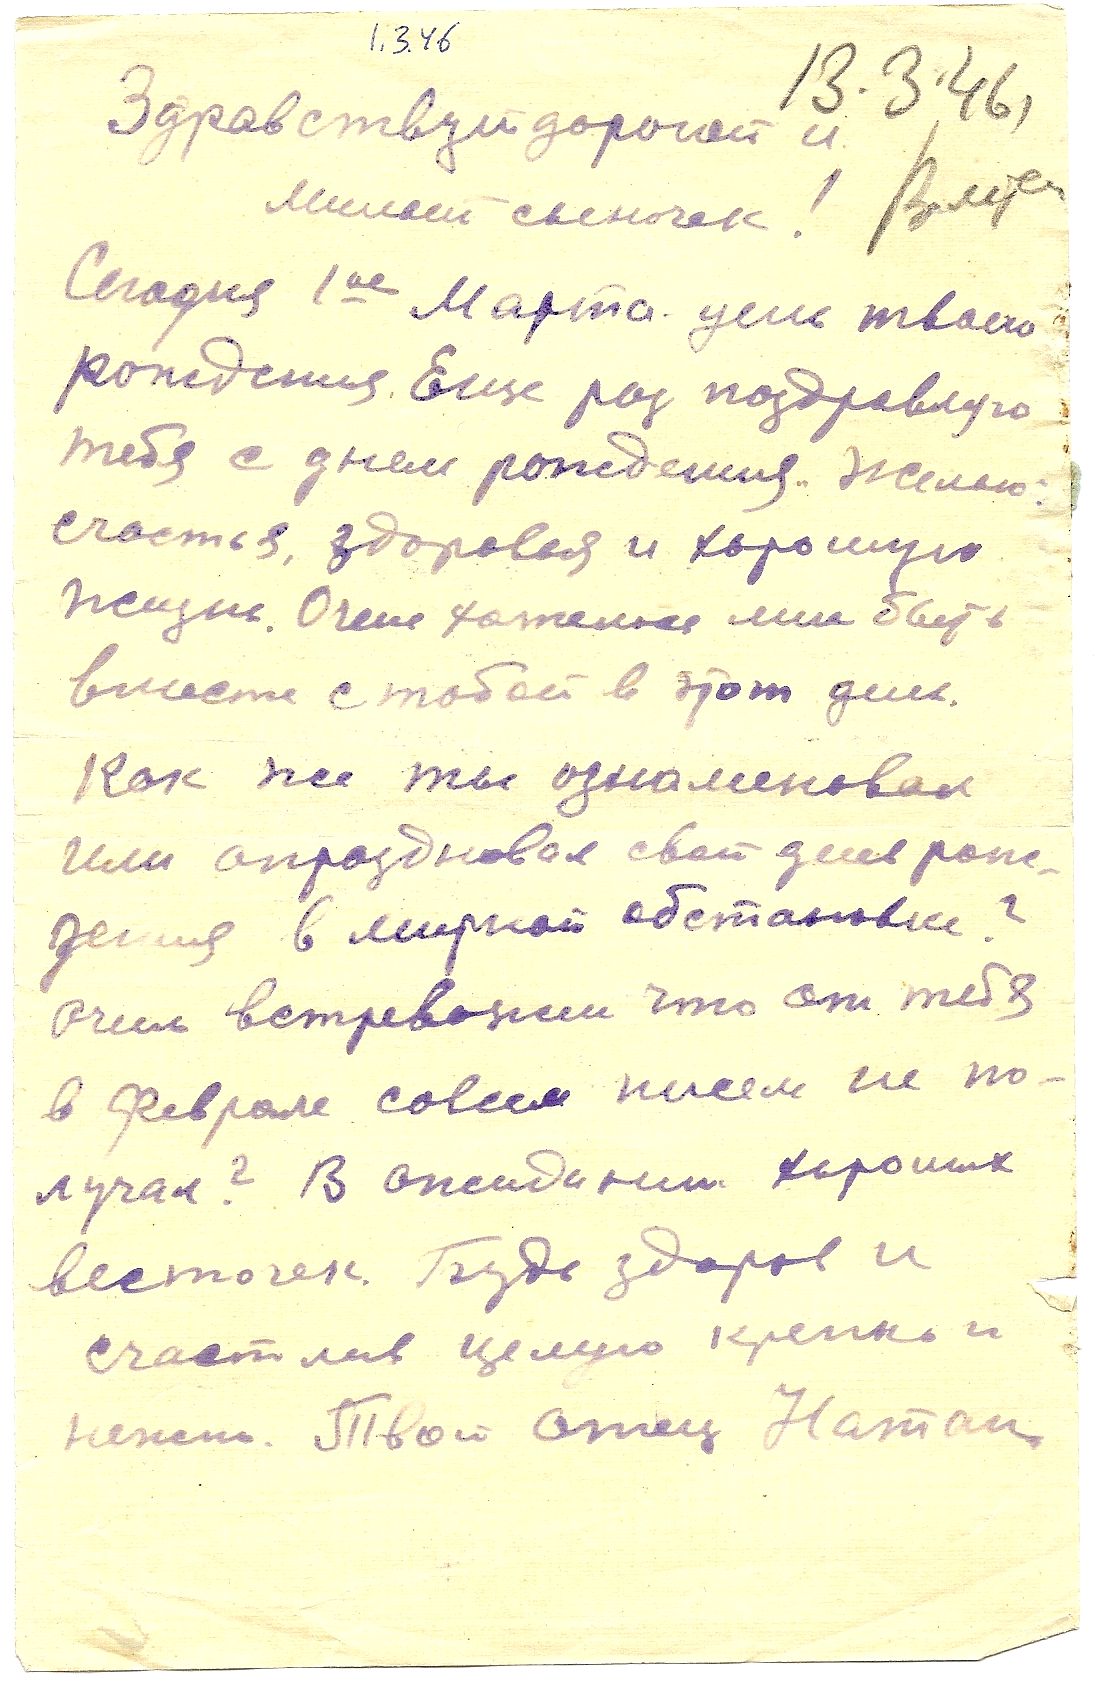 1.3.46
13.3.46,
Здравствуй дорогой и
милый сыночек!
Сегодня 1ое Марта день твоего
рождения. Еще раз поздравляю
тебя с днем рождения. Желаю:
счастья, здоровья и хорошую
жизнь. Очень хотелось мне быть
вместе с тобой в этот день.
Как же ты ознаменовал
или отпраздновал свой день рож-
дения в мирной обстановке?
Очень встревожен что от тебя
в феврале совсем писем не по-
лучал? В ожидании хороших
весточек. Будь здоров и
счастлив целую крепко и
нежно. Твой отец Натан.